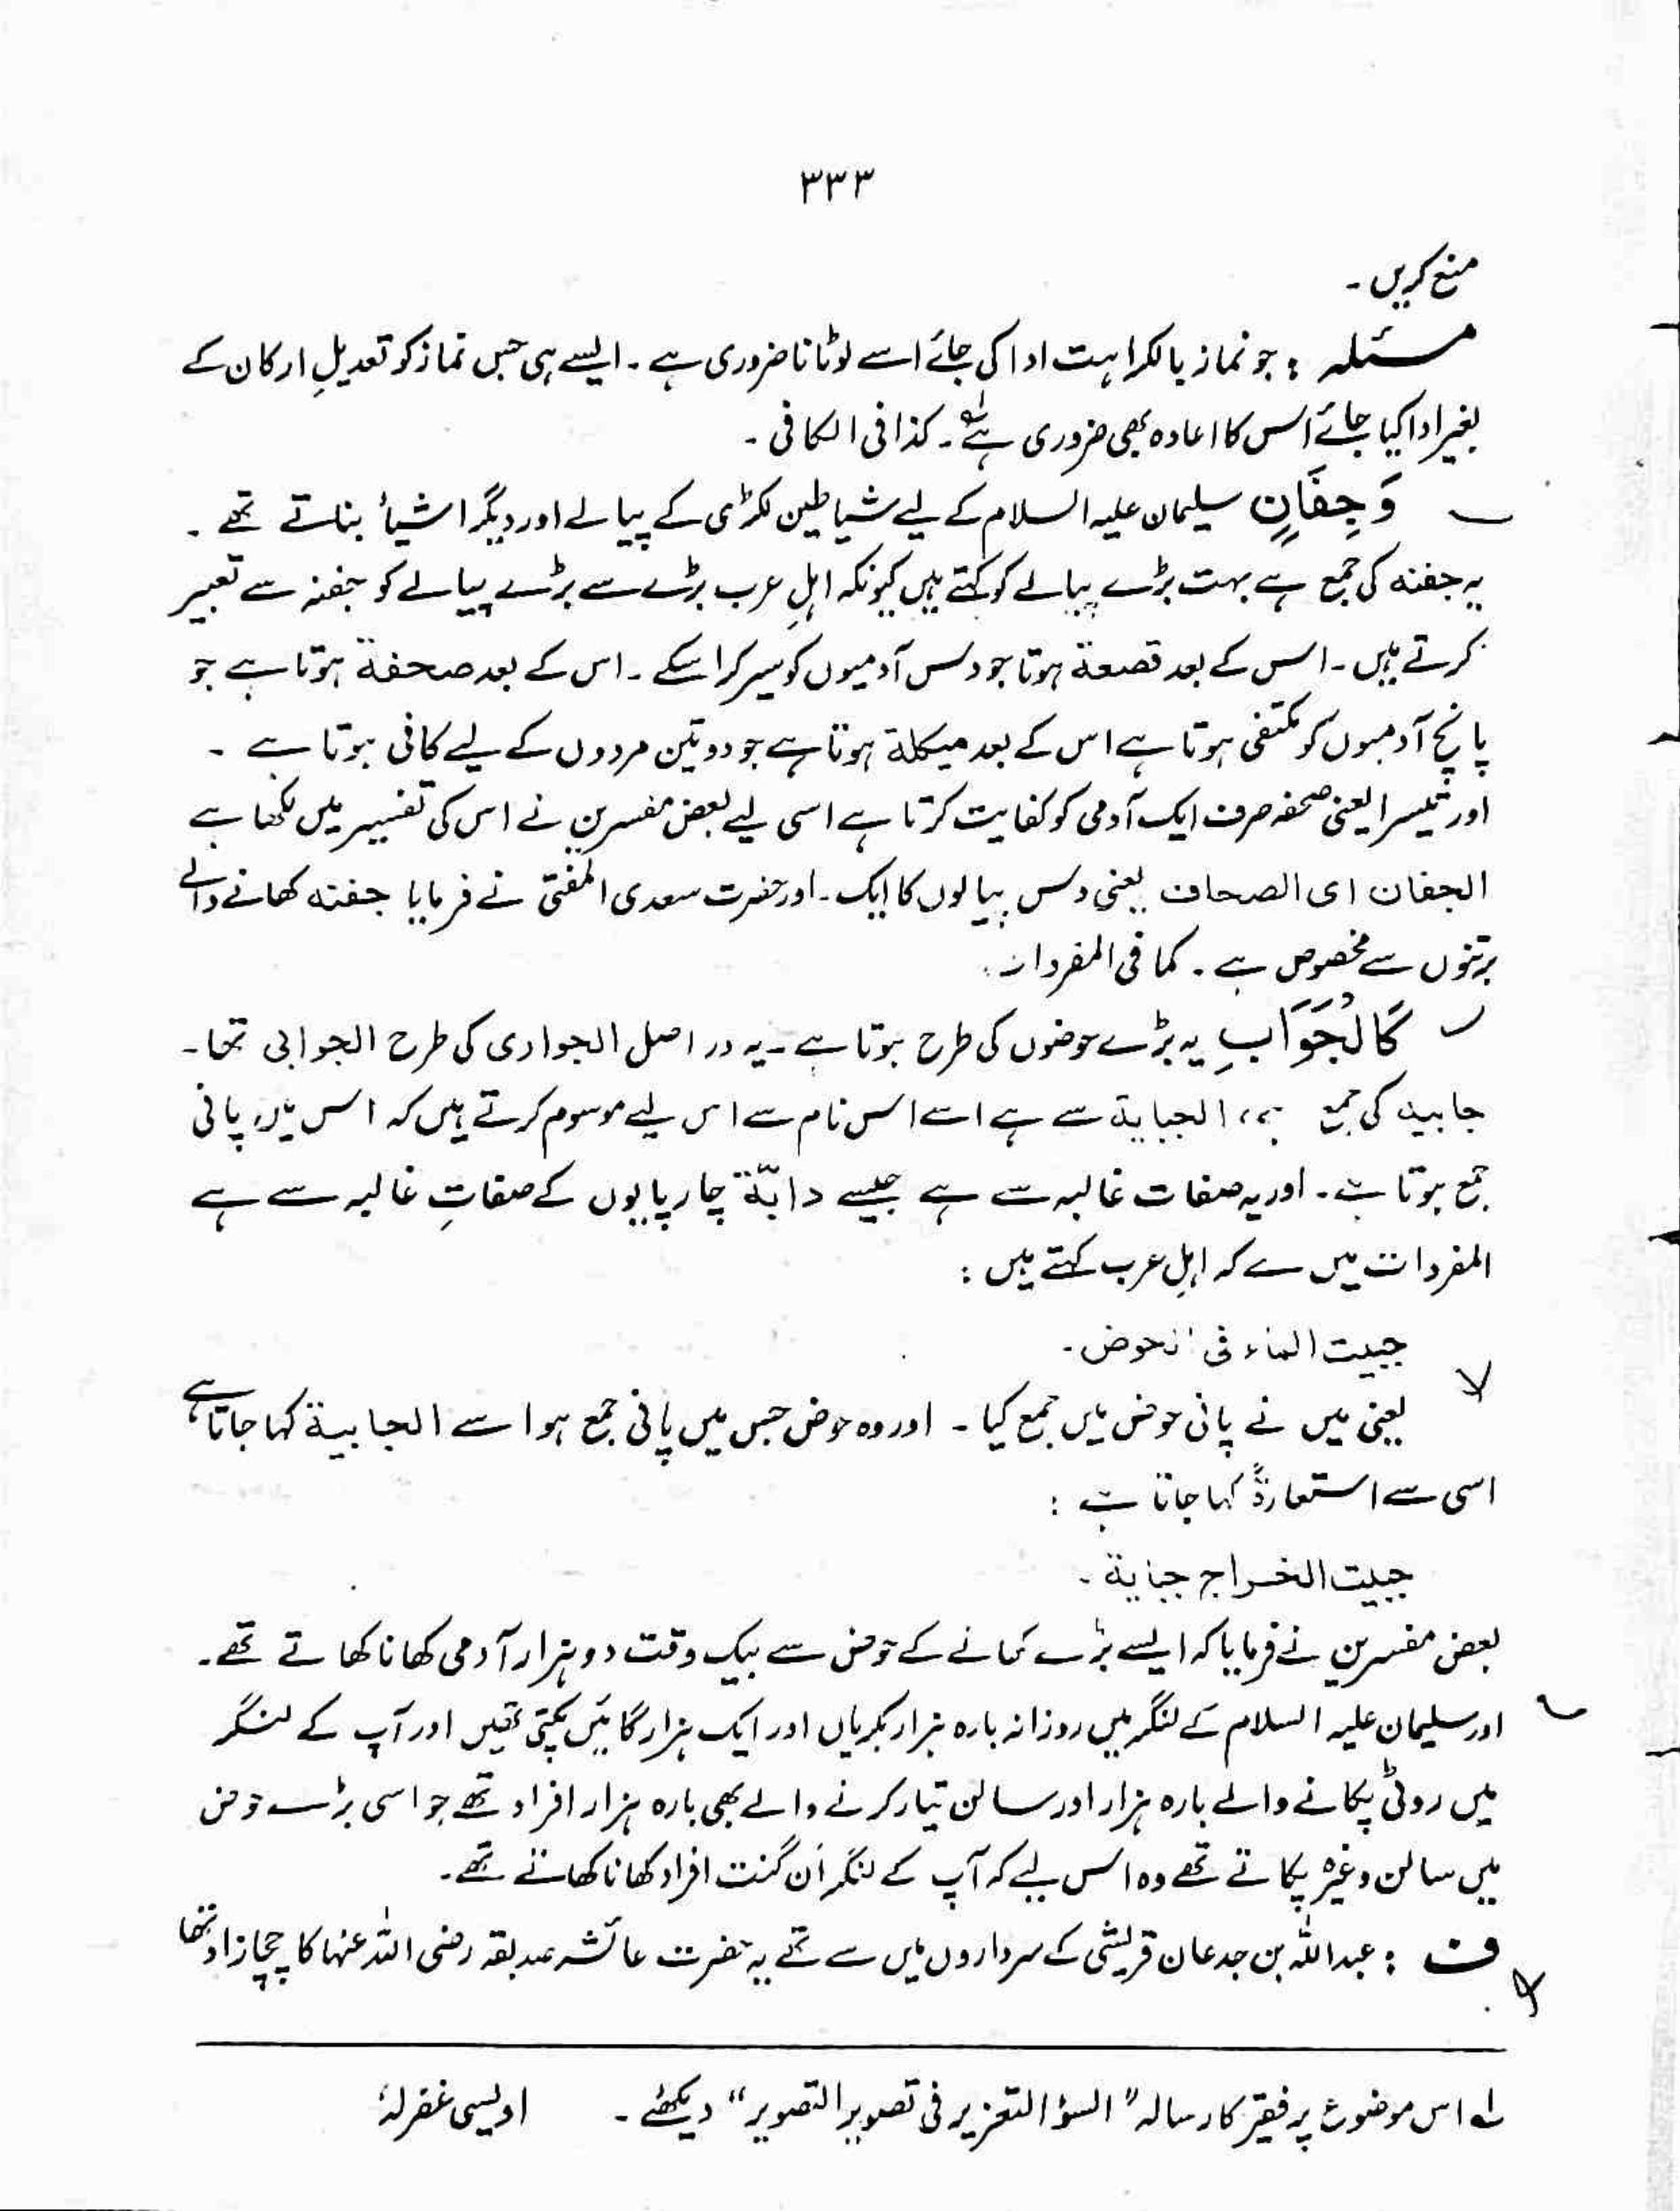 ۳۳۳
منع کریں ۔
مسئلہ : جو نماز بالکراہت ادا کی جائے اسے لوٹانا ضروری ہے ۔ ایسے ہی جس نماز کو تعدیلِ ارکان کے
بغیر ادا کیا جائے اس کا اعادہ بھی ضروری ہے۔ کذا فی الکافی ۔
وَجِفَانٍ سلیمان علیہ السلام کے لیے شیاطین لکڑی کے پیالے اور دیگر اشیاٗ بناتے تھے ۔
یہ جفنہ کی جمع ہے بہت بڑے پیالے کو کہتے ہیں کیونکہ اہلِ عرب بڑے سے بڑے پیالے کو جفنہ سے تعبیر
کرتے ہیں ۔ اس کے بعد قصعة ہوتا جو دس آدمیوں کو سیر کرا سکے ۔ اس کے بعد صحفة ہوتا ہے جو
پانچ آدمیوں کو مکتفی ہوتا ہے اس کے بعد میکلة ہوتا ہے جو دو تین مردوں کے لیے کافی ہوتا ہے ۔
اور تیسرا یعنی صحفہ صرف ایک آدمی کو کفایت کرتا ہے اسی لیے بعض مفسرین نے اس کی تفسیر میں لکھا ہے
الجفان ای الصحاف یعنی دس پیالوں کا ایک ۔ اور حضرت سعدی المفتی نے فرمایا جفنہ کھانے والے
برتنوں سے مخصوص ہے ۔ کما فی المفردات ۔
کَالْجَوَابِ یہ بڑے حوضوں کی طرح ہوتا ہے ۔ یہ در اصل الجواری کی طرح الجوابی تھا ۔
جابیہ کی جمع ہے، الجبایة سے ہے اسے اس نام سے اس لیے موسوم کرتے ہیں کہ اس میں پانی
جمع ہوتا ہے ۔ اور یہ صفات غالبہ سے ہے جیسے دابّة چارپایوں کے صفاتِ غالبہ سے ہے
المفردات میں ہے کہ اہلِ عرب کہتے ہیں :
جبیت الماء فی الحوض ۔
یعنی میں نے پانی حوض میں جمع کیا ۔ اور وہ حوض جس میں پانی جمع ہو اسے الجابیة کہا جاتا ہے
اسی سے استعارةً کہا جاتا ہے :
جبیت الخراج جبایة ۔
بعض مفسرین نے فرمایا کہ ایسے بڑے کھانے کے حوض سے بیک وقت دو ہزار آدمی کھانا کھاتے تھے ۔
اور سلیمان علیہ السلام کے لنگر میں روزانہ بارہ ہزار بکریاں اور ایک ہزار گائیں پکتی تھیں اور آپ کے لنگر
میں روٹی پکانے والے بارہ ہزار اور سالن تیار کرنے والے بھی بارہ ہزار افراد تھے جو اسی بڑے حوض
میں سالن وغیرہ پکاتے تھے وہ اس لیے کہ آپ کے لنگر اَن گنت افراد کھانا کھاتے تھے ۔
ف : عبداللہ بن جدعان قریشی کے سرداروں میں سے تھے یہ حضرت عائشہ صدیقہ رضی اللہ عنہا کا چچازاد تھا
لہ اس موضوع پر فقیر کا رسالہ " السؤ التعزیر فی تصویر التصویر " دیکھئے ۔ اویسی غفرلہٗ